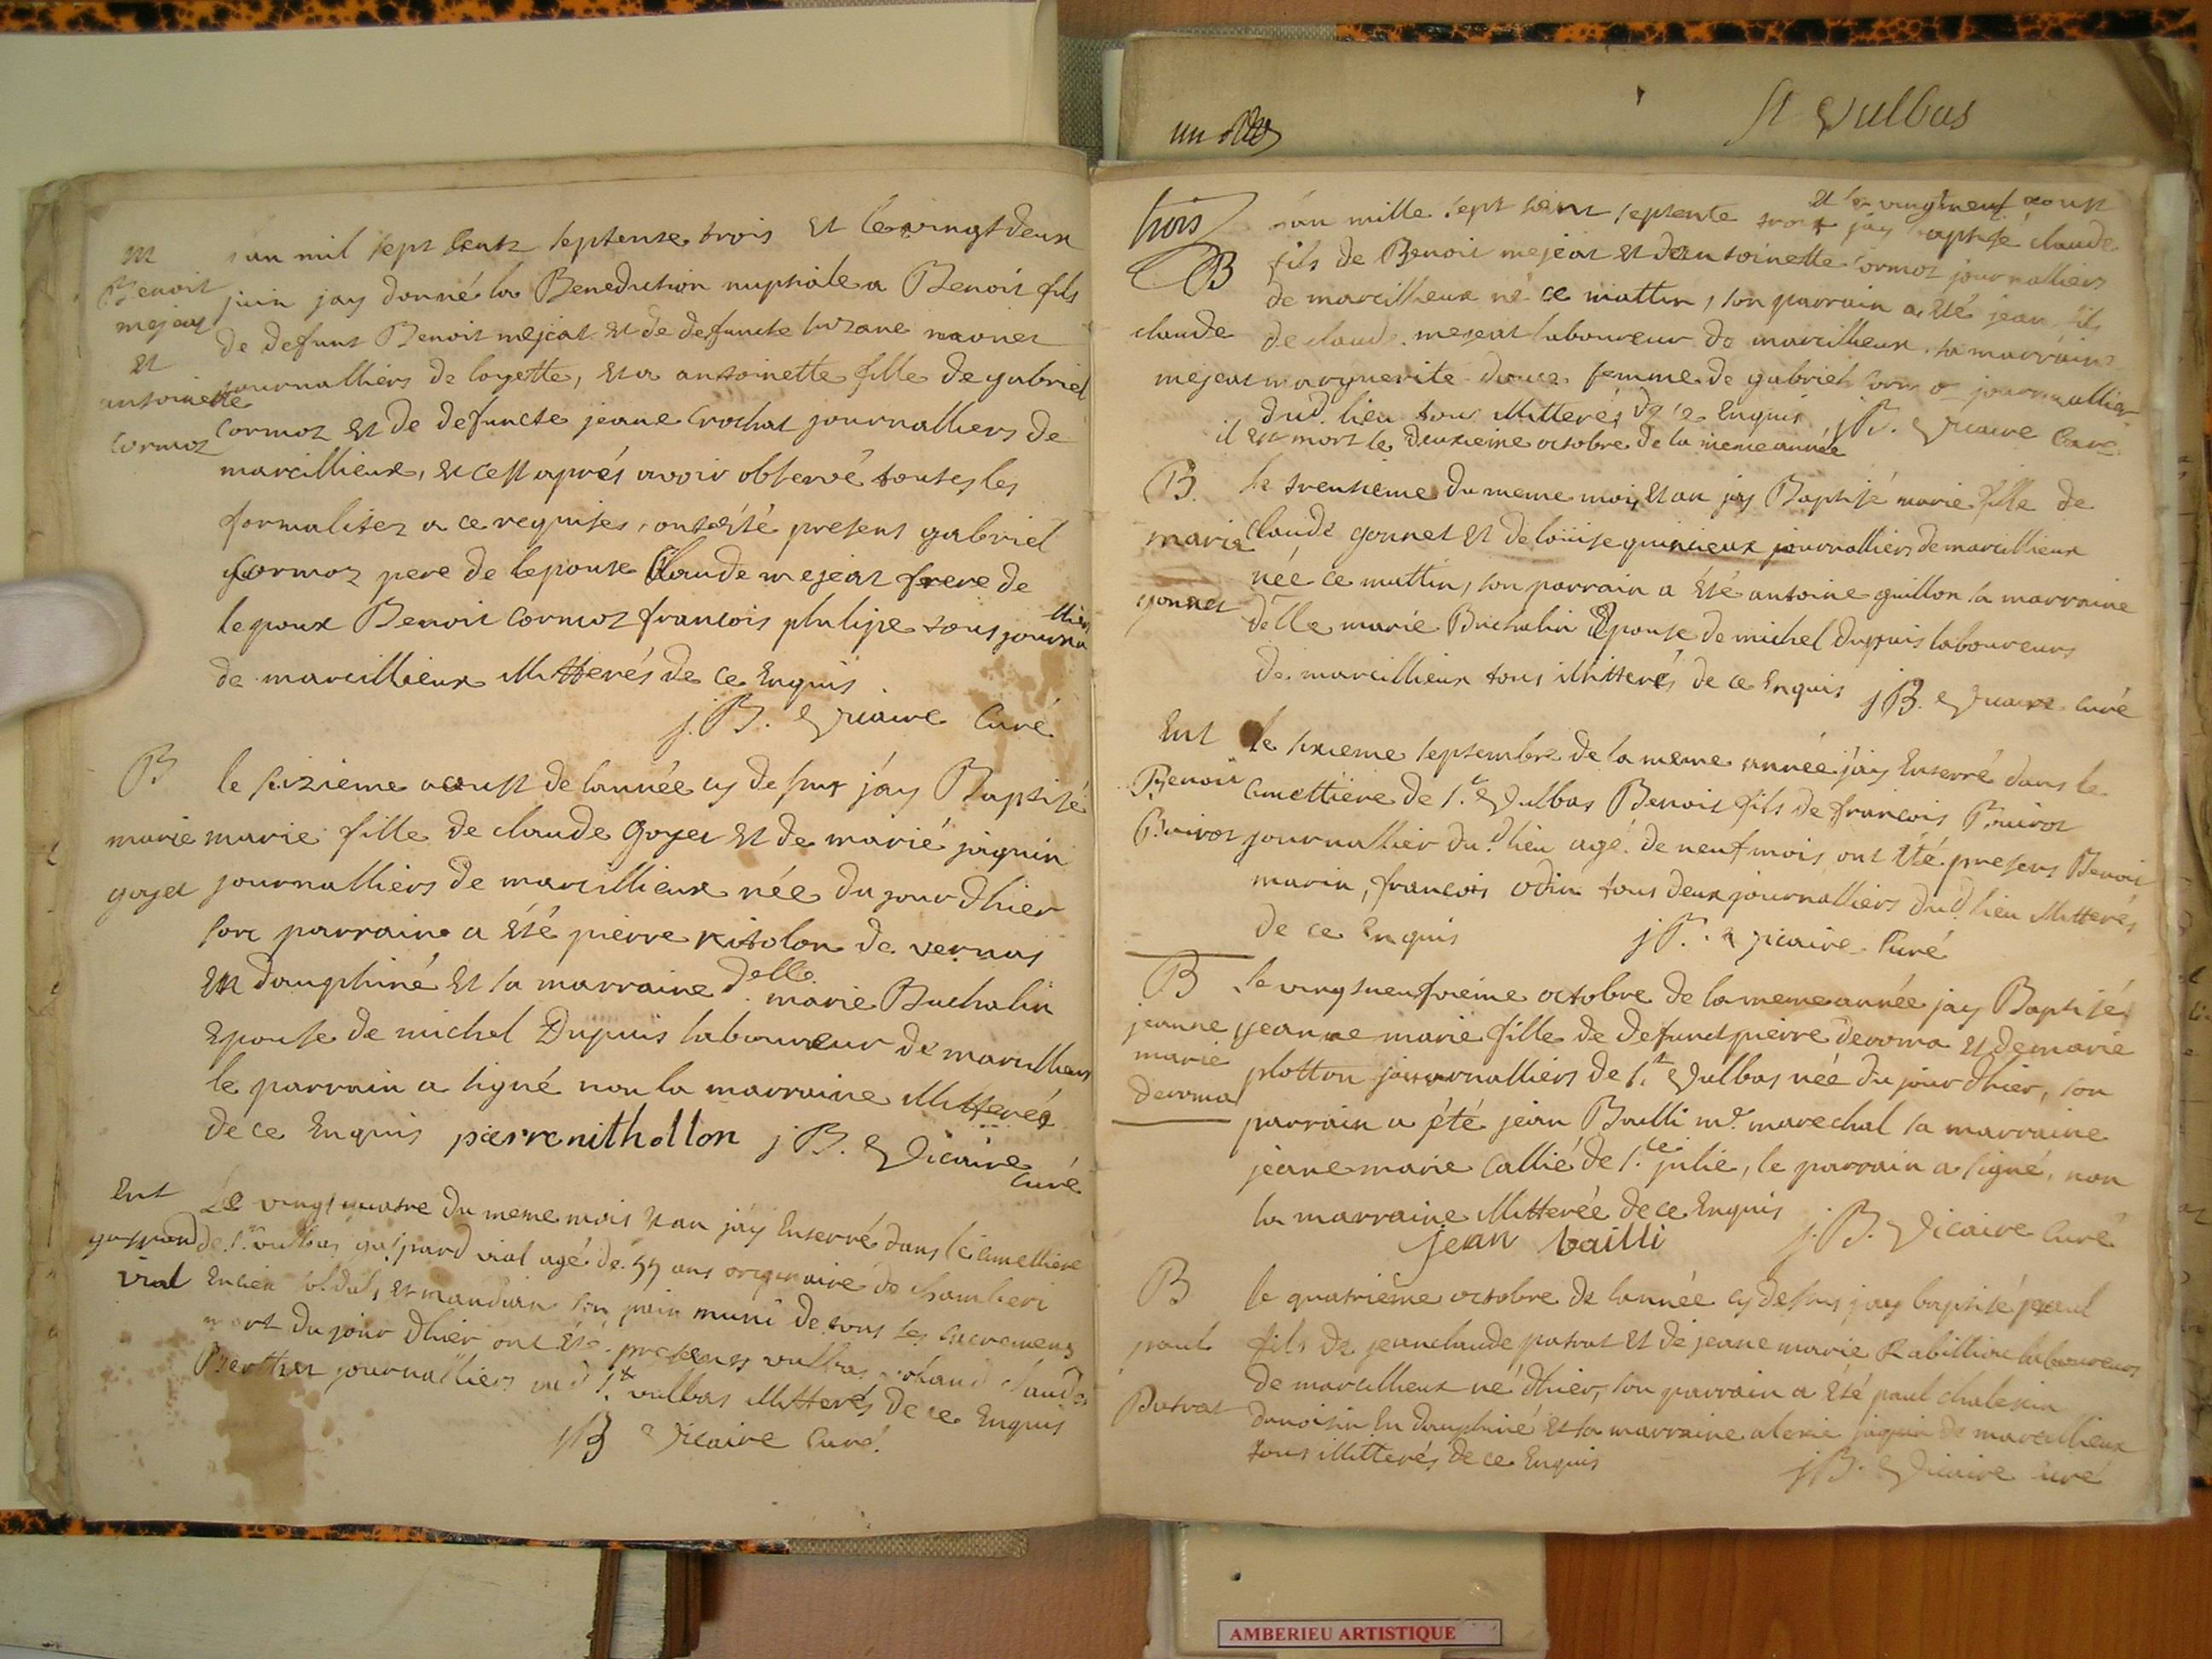 M
Benoit
mejeat
et
antoinette
Cormoz
l'an mil sept cents septente trois et le vingt deux
juin jay donné la Benediction nuptiale a Benoit fils
de defunt Benoit mejeat et de defuncte suzane
journalliers de loyette, et a antoinette fille de gabriel
Cormoz et de defuncte jeane Crochat journalliers de
marcillieux, et cest aprés avoir observé toutes les
formalitez a ce requises, ont été present gabriel
Cormoz pere de lepouse Claude mejeat frere de
lepoux Benoit Cormoz francois philipe tous journalliers
de marcillieux illitterés de ce Enquis.
j. B. Vicaire Curé
B
marie
goyet
le seizieme aoust de lannée cy dessus j'ay Baptisé
marie fille de claude Goyet et de marie jaquin
journalliers de marcillieux née du jour d'hier
son parrain a été pierre nitolon de vernas
en dauphiné et sa marraine delle. marie Buchalin
Epouse de michel Dupuis laboureur de marcillieux
le parrain a signé non la marraine illitterée
de ce Enquis pierre nithollon j B. Vicaire
Curé
Ent
gaspard
vial
Le vingt quatre du meme mois et an jay Enterré dans le cimettiere
de St. vulbas gaspard vial agé de 55 ans originaire de chamberi
Encien soldat, et mandian son pain muni de tous les sacremens
mort du jour d'hier, ont été presents vulbas claude
Berthet journalliers dud St. vulbas illitterés de ce Enquis
j B Vicaire Curé.
St Vulbas
un
trois
B
claude
mejeat
l'an mille sept cent septente trois et le vingtneuf aoust
jay baptisé claude
fils de Benoit mejeat et dantoinette Cormoz journalliers
de marcillieux né ce mattin, son parrain a été jean fils
de claude mejeat laboureur de marcillieux sa marraine
marguerite femme de gabriel Cormoz journallier
dud. lieu tous illitterés de ce Enquis j B. Vicaire Curé
il est mort le deuxieme octobre de la meme année
B.
marie
gonnet
le trentieme du meme mois et an jay Baptisé marie fille de
claude gonnet et de loüise quincieux journalliers de marcillieux
née ce mattin, son parrain a été antoine guillon sa marraine
delle marie Buchalin Epouse de michel dupuis laboureurs
de marcillieux tous illitterés de ce Enquis j B. Vicaire Curé
Ent
Benoit
Poirot
le sixieme septembre de la meme année j'ay Enterré dans le
cimettiere de St. Vulbas Benoit fils de francois Poirot
journallier dud. lieu agé de neuf mois ont été presens Benoit
marin, francois odin tous deux journalliers dud. lieu illitterés
de ce Enquis j B. Vicaire Curé
B
jeanne
marie
deroma
le vingtneufvieme octobre de la meme année jay Baptisée
jeanne marie fille de defunct pierre deroma et de marie
plotton journalliers de St. Vulbas née du jour d'hier, son
parrain a été jean Bailli me. marechal sa marraine
jeane marie Callié de Ste. julie, le parrain a signé, non
la marraine illitterée de ce Enquis
jean bailli j. B. Vicaire Curé
B
paul
Patrat
le quatrieme octobre de lannée cy dessus jay baptisé paul
fils de jeanclaude patrat et de jeane marie Rabilliou laboureurs
de marcillieux né d'hier, son parrain a été paul
danoisin En dauphiné et sa marraine jaquin de marcillieux
tous illitterés de ce Enquis j B. Vicaire Curé
AMBERIEU ARTISTIQUE